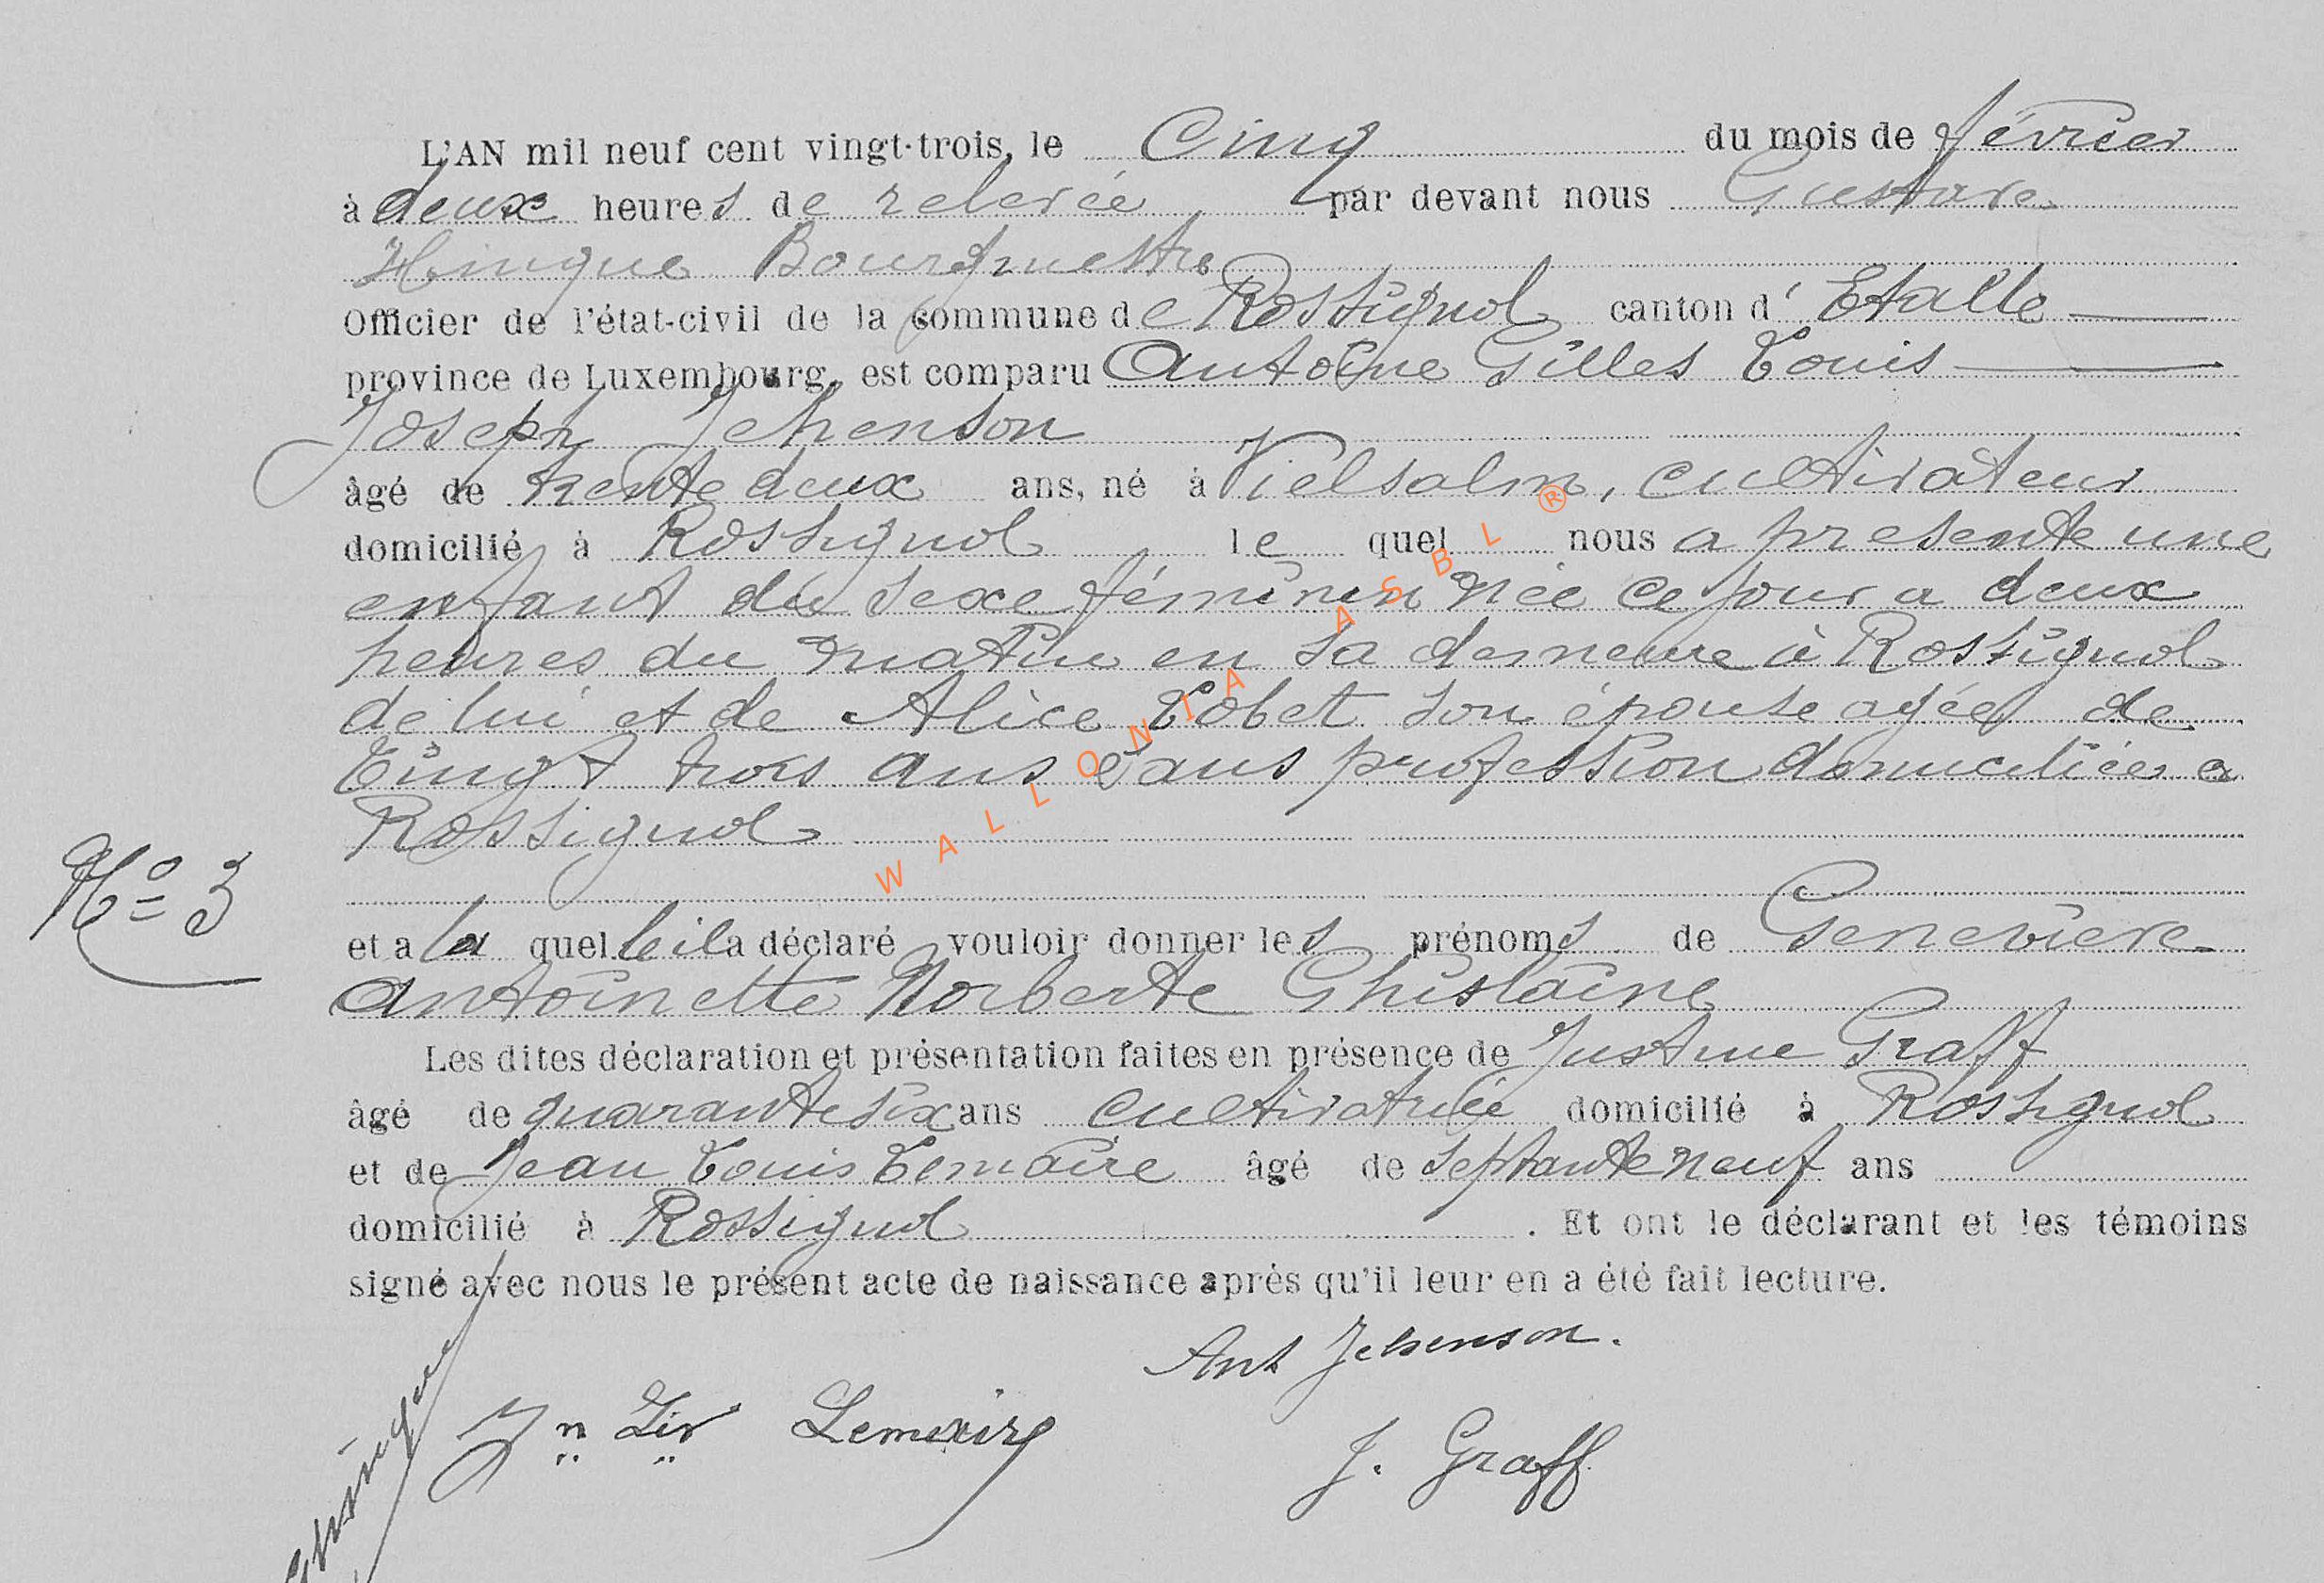 L'AN mil neuf cent vingt-trois, le Cinq du mois de février
à deux heures de relevée par devant nous Gustave
Hinque Bourgmestre
Officier de l'état-civil de la commune de Rossignol canton d' Etalle
province de Luxembourg, est comparu Antoine Gilles Louis
Joseph Jehenson
âgé de trente deux ans, né à Vielsalm, cultivateur
domicilié à Rossignol le quel nous a presente une
enfant du sexe féminin née ce jour a deux
heures du matin en sa demeure à Rossignol
de lui et de Alice Lobet son épouse agée de
Vingt trois ans sans profession domiciliée a
Rossignol
No 3
et a la quelle il a déclaré vouloir donner les prénoms de Genevieve
Antoinette Norberte Ghislaine
Les dites déclaration et présentation faites en présence de Justine Graff
âgé de quarante six ans cultivatrice domicilié à Rossignol
et de Jean Louis Lemaire âgé de septante neuf ans
domicilié à Rossignol . Et ont le déclarant et les témoins
signé avec nous le présent acte de naissance après qu'il leur en a été fait lecture.
Ant Jehenson.
Jn Lis Lemaire
J. Graff
GHinque
WALLONIA ASBL ®